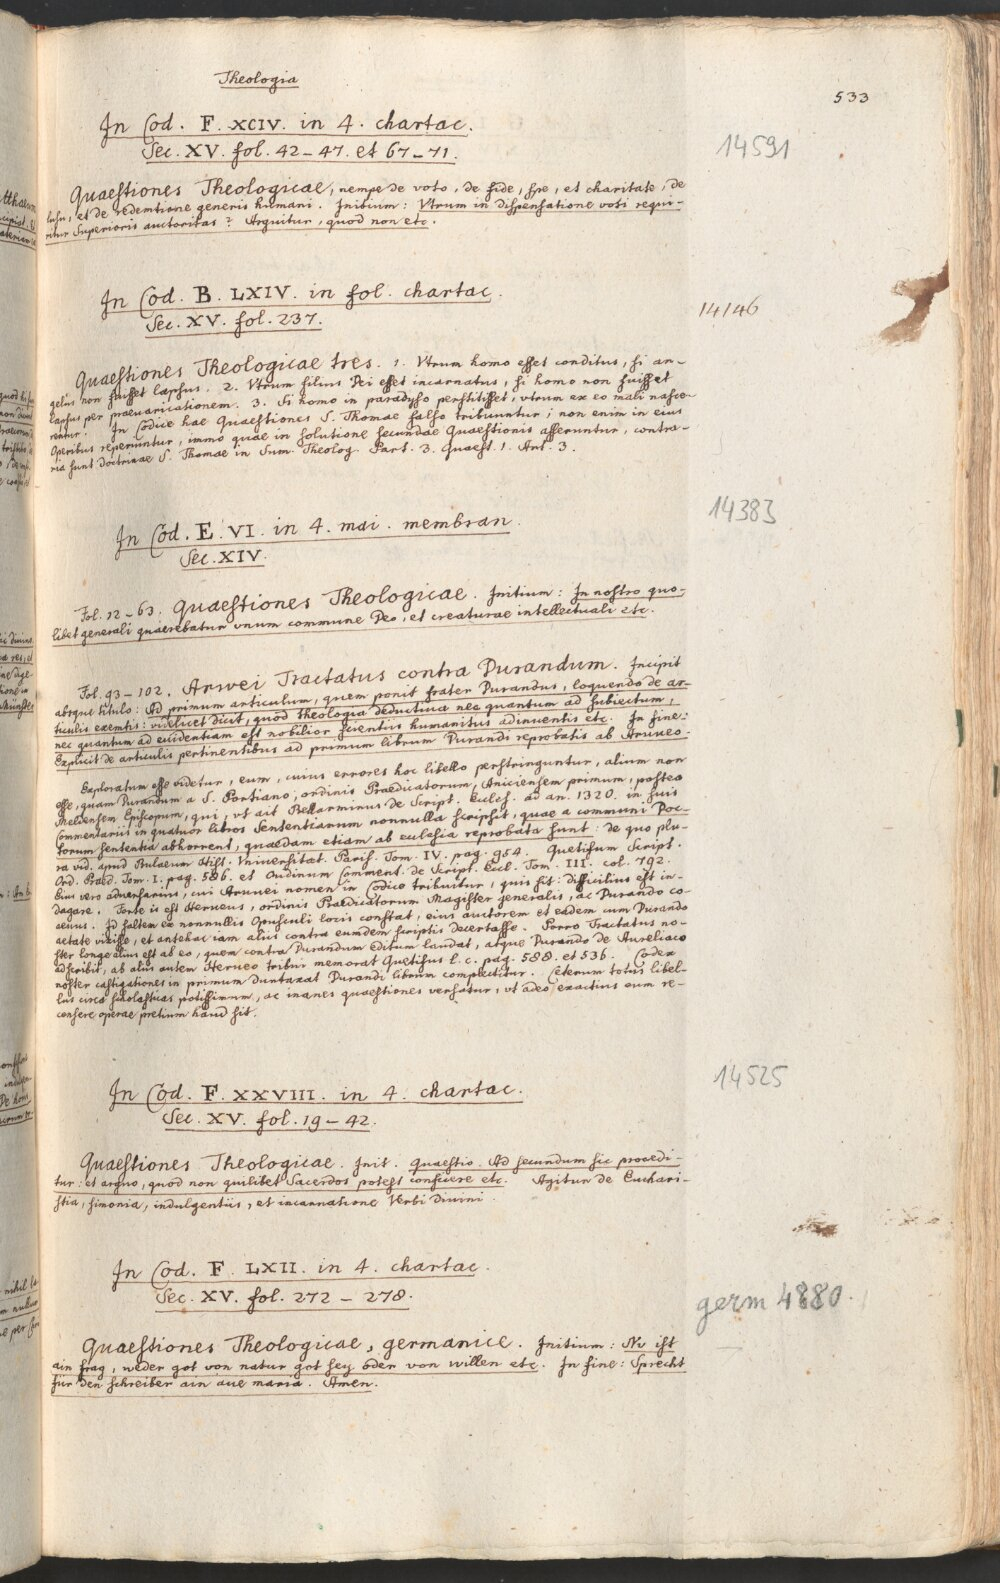 Theologia
533
In Cod. F. XCIV. in 4. chartac.
14591
Sec. XV. fol. 42-47. et 67-71.
Quaestiones Theologicae, nempe de voto, de fide, spe, et charitate, de
lusu, et de redemtione generis humani. Initium: Vtrum in dispensatione voti requi-
ritur Superioris auctoritas? Arguitur, quod non etc.
In Cod. B. LXIV. in fol. chartac.
14146
Sec. XV. fol. 237.
Quaestiones Theologicae tres. 1. Vtrum homo esset conditus, si an-
gelus non fuisset lapsus. 2. Vtrum filius Dei esset incarnatus, si homo non fuisset
lapsus per praeuaricationem. 3. Si homo in paradyso perstitisset, vtrum ex eo mali nasce-
rentur. In Codice hae Quaestiones S. Thomae falso tribuuntur; non enim in eius
Operibus reperiuntur, immo quae in solutione secundae Quaestionis afferuntur, contra-
ria sunt doctrinae S. Thomae in Sum. Theolog. Part. 3. Quaest. 1. Art. 3.
14383
In Cod. E. VI. in 4. mai. membran.
Sec. XIV.
Fol. 12-63. Quaestiones Theologicae. Initium: In nostro quo-
libet generali quaerebatur vnum commune Deo, et creaturae intellectuali etc.
Fol. 93-102. Arwei Tractatus contra Durandum. Incipit
absque titulo: Ad primum articulum, quem ponit frater Durandus, loquendo de ar-
ticulis exemtis: videlicet dicit, quod theologia deductiua nec quantum ad subiectum,
nec quantum ad euidentiam est nobilior scientiis humanitus adinuentis etc. In fine:
Explicit de articulis pertinentibus ad primum librum Durandi reprobatis ab Arvueo.
Exploratum esse videtur, eum, cuius errores hoc libello perstringuntur, alium non
esse, quam Durandum a S. Portiano, ordinis Praedicatorum, Aniciensem primum, postea
Meldensem Episcopum, qui, vt ait Bellarminus de Script. Eccles. ad an. 1320. in suis
Commentariis in quatuor libros Sententiarum nonnulla scripsit, quae a communi Doc-
torum sententia abhorrent, quaedam etiam ab ecclesia reprobata sunt: de quo plu-
ra vid. apud Bulaeum Hist. Vniversitat. Paris. Tom. IV. pag. 954. Quetifum Script.
Ord. Praed. Tom. I. pag. 586. et Oudinum Comment. de Script. Eccl. Tom. III. col. 792.
Eius vero aduersarius, cui Aruuei nomen in Codice tribuitur, quis sit: difficilius est in-
dagare. Forte is est Herueus, ordinis Praedicatorum Magister generalis, ac Durando co-
aeuus. Id saltem ex nonnullis Opusculi locis constat, eius auctorem et eadem cum Durando
aetate vixisse, et antehac iam aliis contra eumdem scriptis decertasse. Porro Tractatus no-
ster longe alius est ab eo, quem contra Durandum editum laudat, atque Durando de Aureliaco
adscribit, ab aliis autem Herueo tribui memorat Quetifus l. c. pag. 588. et 536. Codex
noster castigationes in primum duntaxat Durandi librum complectitur. Ceterum totus libel-
lus circa scholasticas potissimum, ac inanes quaestiones versatur, vt adeo exactius eum re-
censere operae pretium haud sit.
14525
In Cod. F. XXVIII. in 4. chartac.
Sec. XV. fol. 19-42.
Quaestiones Theologicae. Init. Quaestio. Ad secundum sic procedi-
tur: et arguo, quod non quilibet Sacerdos potest conficere etc. Agitur de Euchari-
stia, simonia, indulgentiis, et incarnatione Verbi Diuini.
In Cod. F. LXII. in 4. chartac.
Sec. XV. fol. 272-278.
germ 4880.
Quaestiones Theologicae, germanice. Initium: Nu ist
ain frag, weder got von natur got sey oder von willen etc. In fine: Sprecht
für den schreiber ain aue maria. Amen.